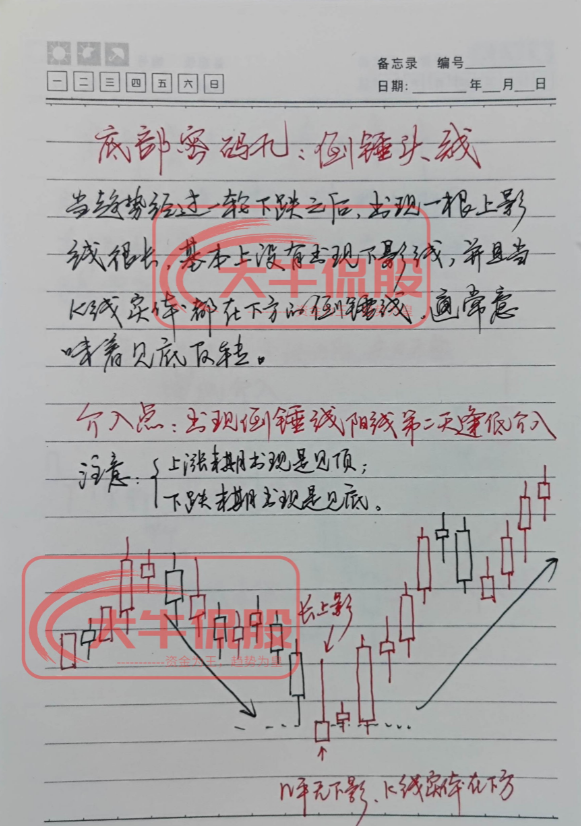 备忘录 编号
一 二 三 四 五 六 日
日期: 年 月 日
底部密码扎：倒锤头线
当趋势经过一轮下跌之后，出现一根上影
线很长，基本上没有出现下影线，并且当
K线实体都在下方的倒锤线，通常意
味着见底反转。
介入点：出现倒锤线阳线第二天逢低介入
注意：
上涨末期出现是见顶；
下跌末期出现是见底。
长上影
几乎无下影、K线实体在下方
天牛侃股
天牛侃股
资金为王，趋势为皇